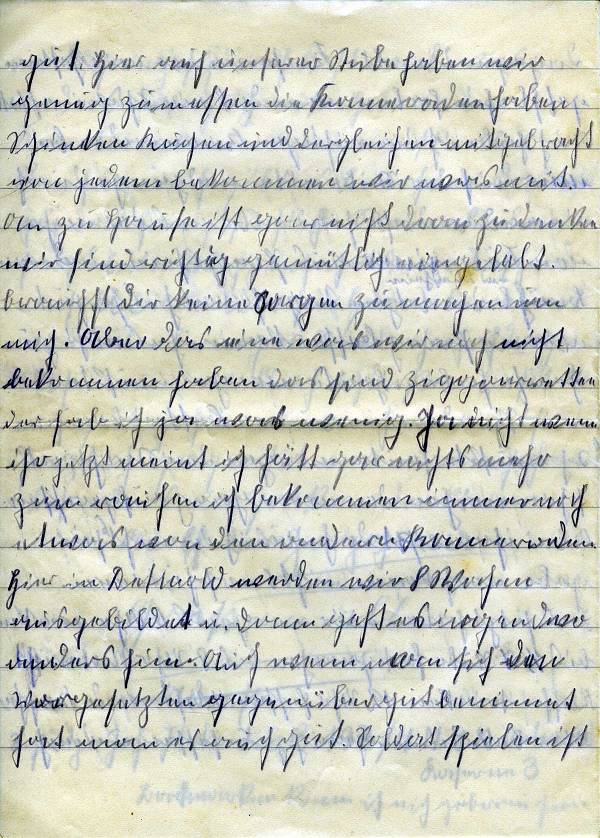 gut. Hier auf unserer Stube haben wir
genug zum essen die Kameraden haben
Schinken Kuchen und dergleichen mitgebracht
von jedem bekommen wir was mit.
An zu Hause ist gar nicht dran zu denken
wir sind richtig gemütlich eingelebt.
brauchst dir keine Sorgen zu machen um
mich. Aber das eine was wir noch nicht
bekommen haben das sind Ziggarretten
der hab ich ja was wenig. Ja nicht wenn
ihr jetzt meint ich hätt gar nichts mehr
zum rauchen ich bekommen immer noch
etwas von den andern Kameraden.
Hier in Dettmold werden wir 8 Wochen
ausgebildet u. dann geht es irgendwo
anders hin. Auch wenn man sich den
Vorgesetzten gegenüber gut benimmt
hat man es auch gut. Soldat spielen ist